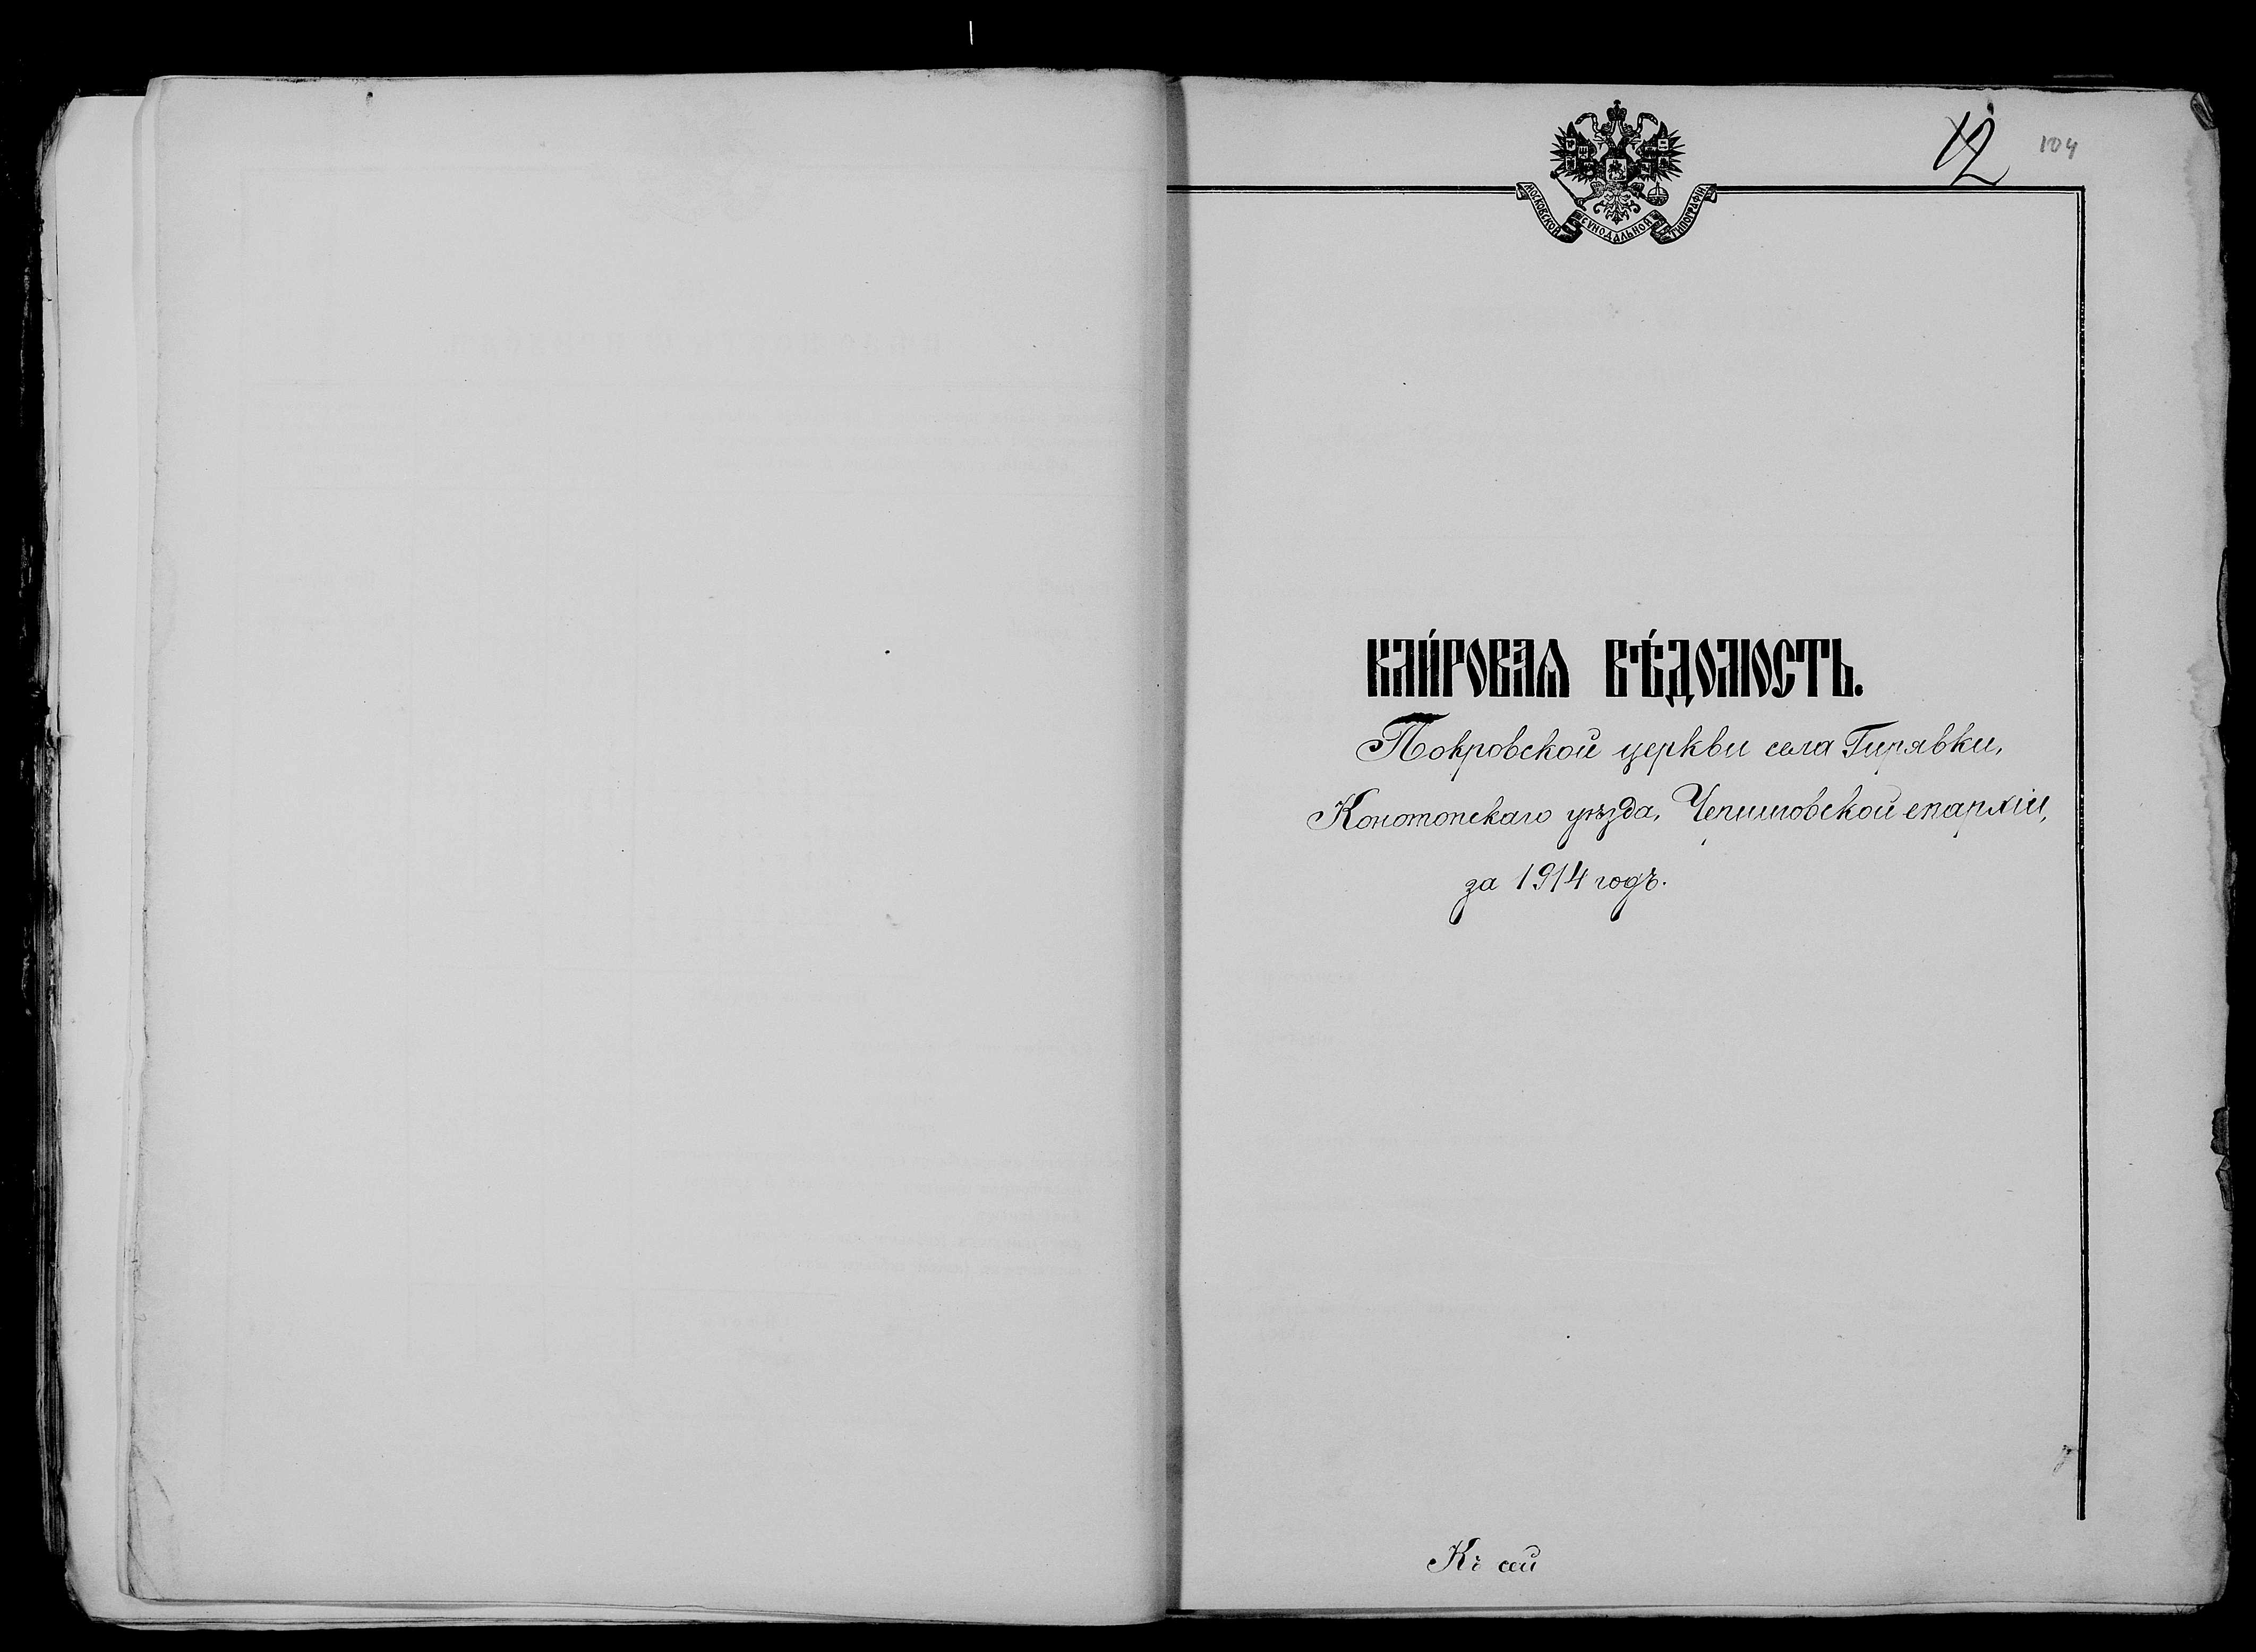 12 104
МОСКОВСКОЙ СѴНОДАЛЬНОЙ ТИПОГРАФІИ
КЛИ́РОВАѦ ВѢ́ДОМОСТЬ.
Покровской церкви села Гирявки,
Конотопскаго уѣзда, Черниговской епархіи,
за 1914 годъ.
Къ сей